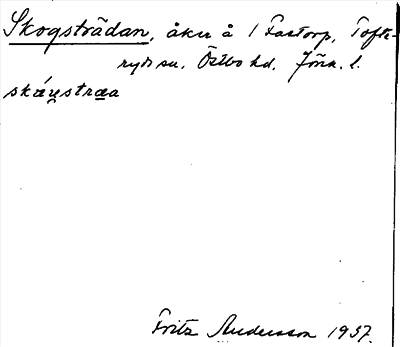 Skogsträdan, åker å 1 Fastorp, Tofte-
ryds sn. Östbo hd. Jönk. l.
skǽu̯stræa
Fritz Andersson 1937.